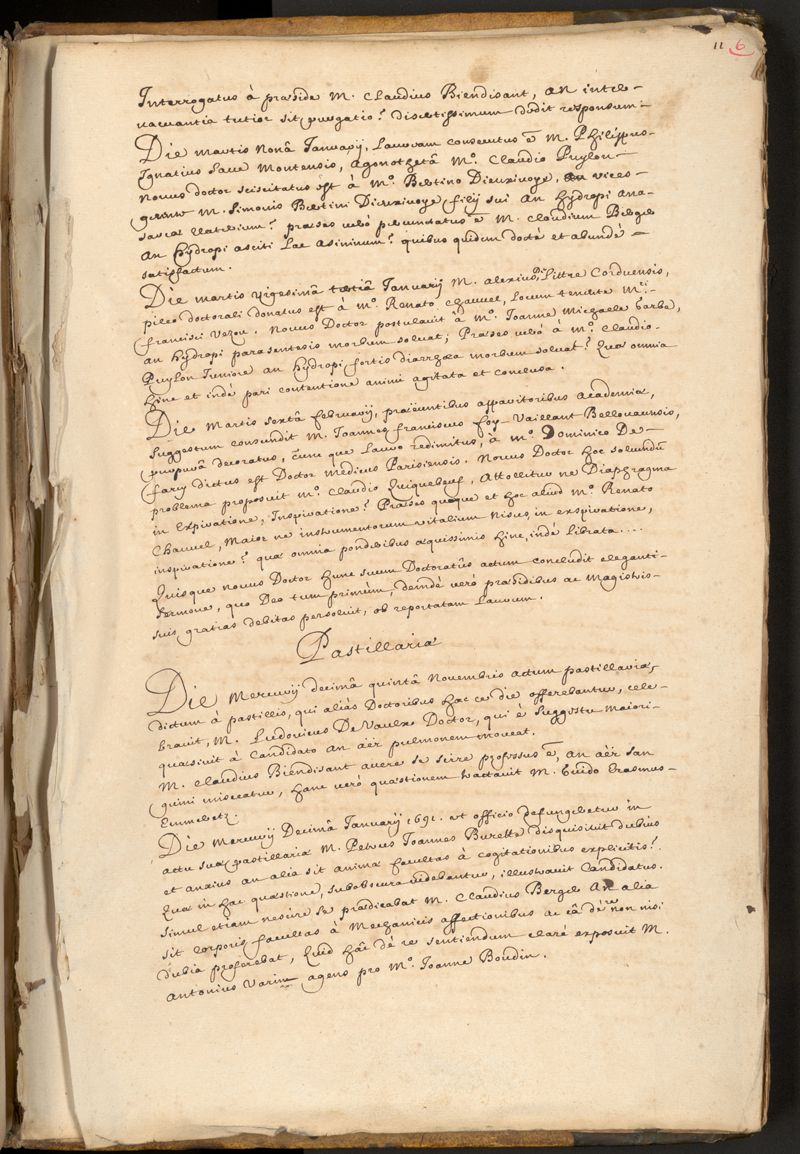 11 6
Interrogatus à præside M. Claudius Biendisant, an intele-
rantia tutior sit purgatio? disertissimum dedit responsum.
Die martis Nonâ Januarij, Lauream consecutus ê M. Philippus-
Ignatius Save Montensis, agonothetâ M.º Claudio Puylon
Novus doctor sciscitatus est à M.º Bertino Dieuxivoye, vices-
gerente M. Simonis Bertini Dieuxivoye filij sui An Hydropi Ana-
sarca Elaterium? præses verò percunctatus ê M. Claudium Berger
An Hydropi asciti Lac Asininum? quibus quidem doctè et abundè
satisfactum.
Die martis vigesimâ tertiâ Januarij M. alexius Littre Corduensis,
pileo doctorali donatus est à M.º Renato Chauvel, locum tenente M.ri
francisci Vezou. Novus Doctor postulavit à M.º Joanne Michaele Garbe,
an Hydropi parasentesis morbum solvat; Præses verò à M.º Claudio
Puylon Juniore an Hydropi fortis diarrhæa morbum solvat? Quæ omnia
hinc et indè pari contentione animi agitata et conclusa.
Die Martis sextâ februarij, præeuntibus apparitoribus Academiæ,
suggestum conscendit M. Joannes franciscus foy-Vaillant Bellovacensis,
purpurâ decoratus, cum que Lauro redimitus, à M.º Dominico De-
farcy dictus est Doctor Medicus Parisiensis. Novus Doctor hoc solvendũ
problema proposuit M.º Claudio Quiquebeuf, Attollitur ne Diaphragma
in Expiratione, Inspiratione? Præses quoque et hoc aliud M.º Renato
Chauvel, Maior ne instrumentorum vitalium Nisus, in exspiratione,
inspiratione? quæ omnia ponderibus æquissimis hinc, indè librata....
Quisque novus Doctor hunc suum Doctoratûs actum concludit eleganti-
sermone, quo Deo tum primùm, deindè verò præsidibus ac Magistris-
suis gratias debitas persolvit, ob reportatam Lauream.
Pastillaria
Die Mercurij decimâ quintâ Novembris actum pastillariæ,
dictum à pastillis, qui aliàs Doctoribus hac ce die offerebantur, cele-
bravit, M. Ludovicus De Vaulx Doctor, qui è suggestu maiori-
quæsivit à Candidato an aër pulmonem moveat.
M. Claudius Biendisant avere se scire professus ê, an aër san
guini misceatur, hanc verò quæstionem tractavit M. Guido Erasmus-
Emmerez.
Die Mercurij Decimâ Januarij 1691. ut officio defungeretur in
actu suæ pastillariæ M. Petrus Joannes Burette disquisivit dubius
et anxius an alia sit animæ facultas à cogitationibus explicitis?
Quæ in hac quæstione, subobscura videbantur, illustravit Candidatus.
Simul etiam nescire se prædicabat M. Claudius Berger An alia
sit Corporis facultas à Mechanicis affectionibus ac eâ de re non nisi
dubia proferebat, Quid hâc dè re sentiendum clarè exposuit M.
Antonius Varin agens pro M.º Joanne Boudin.